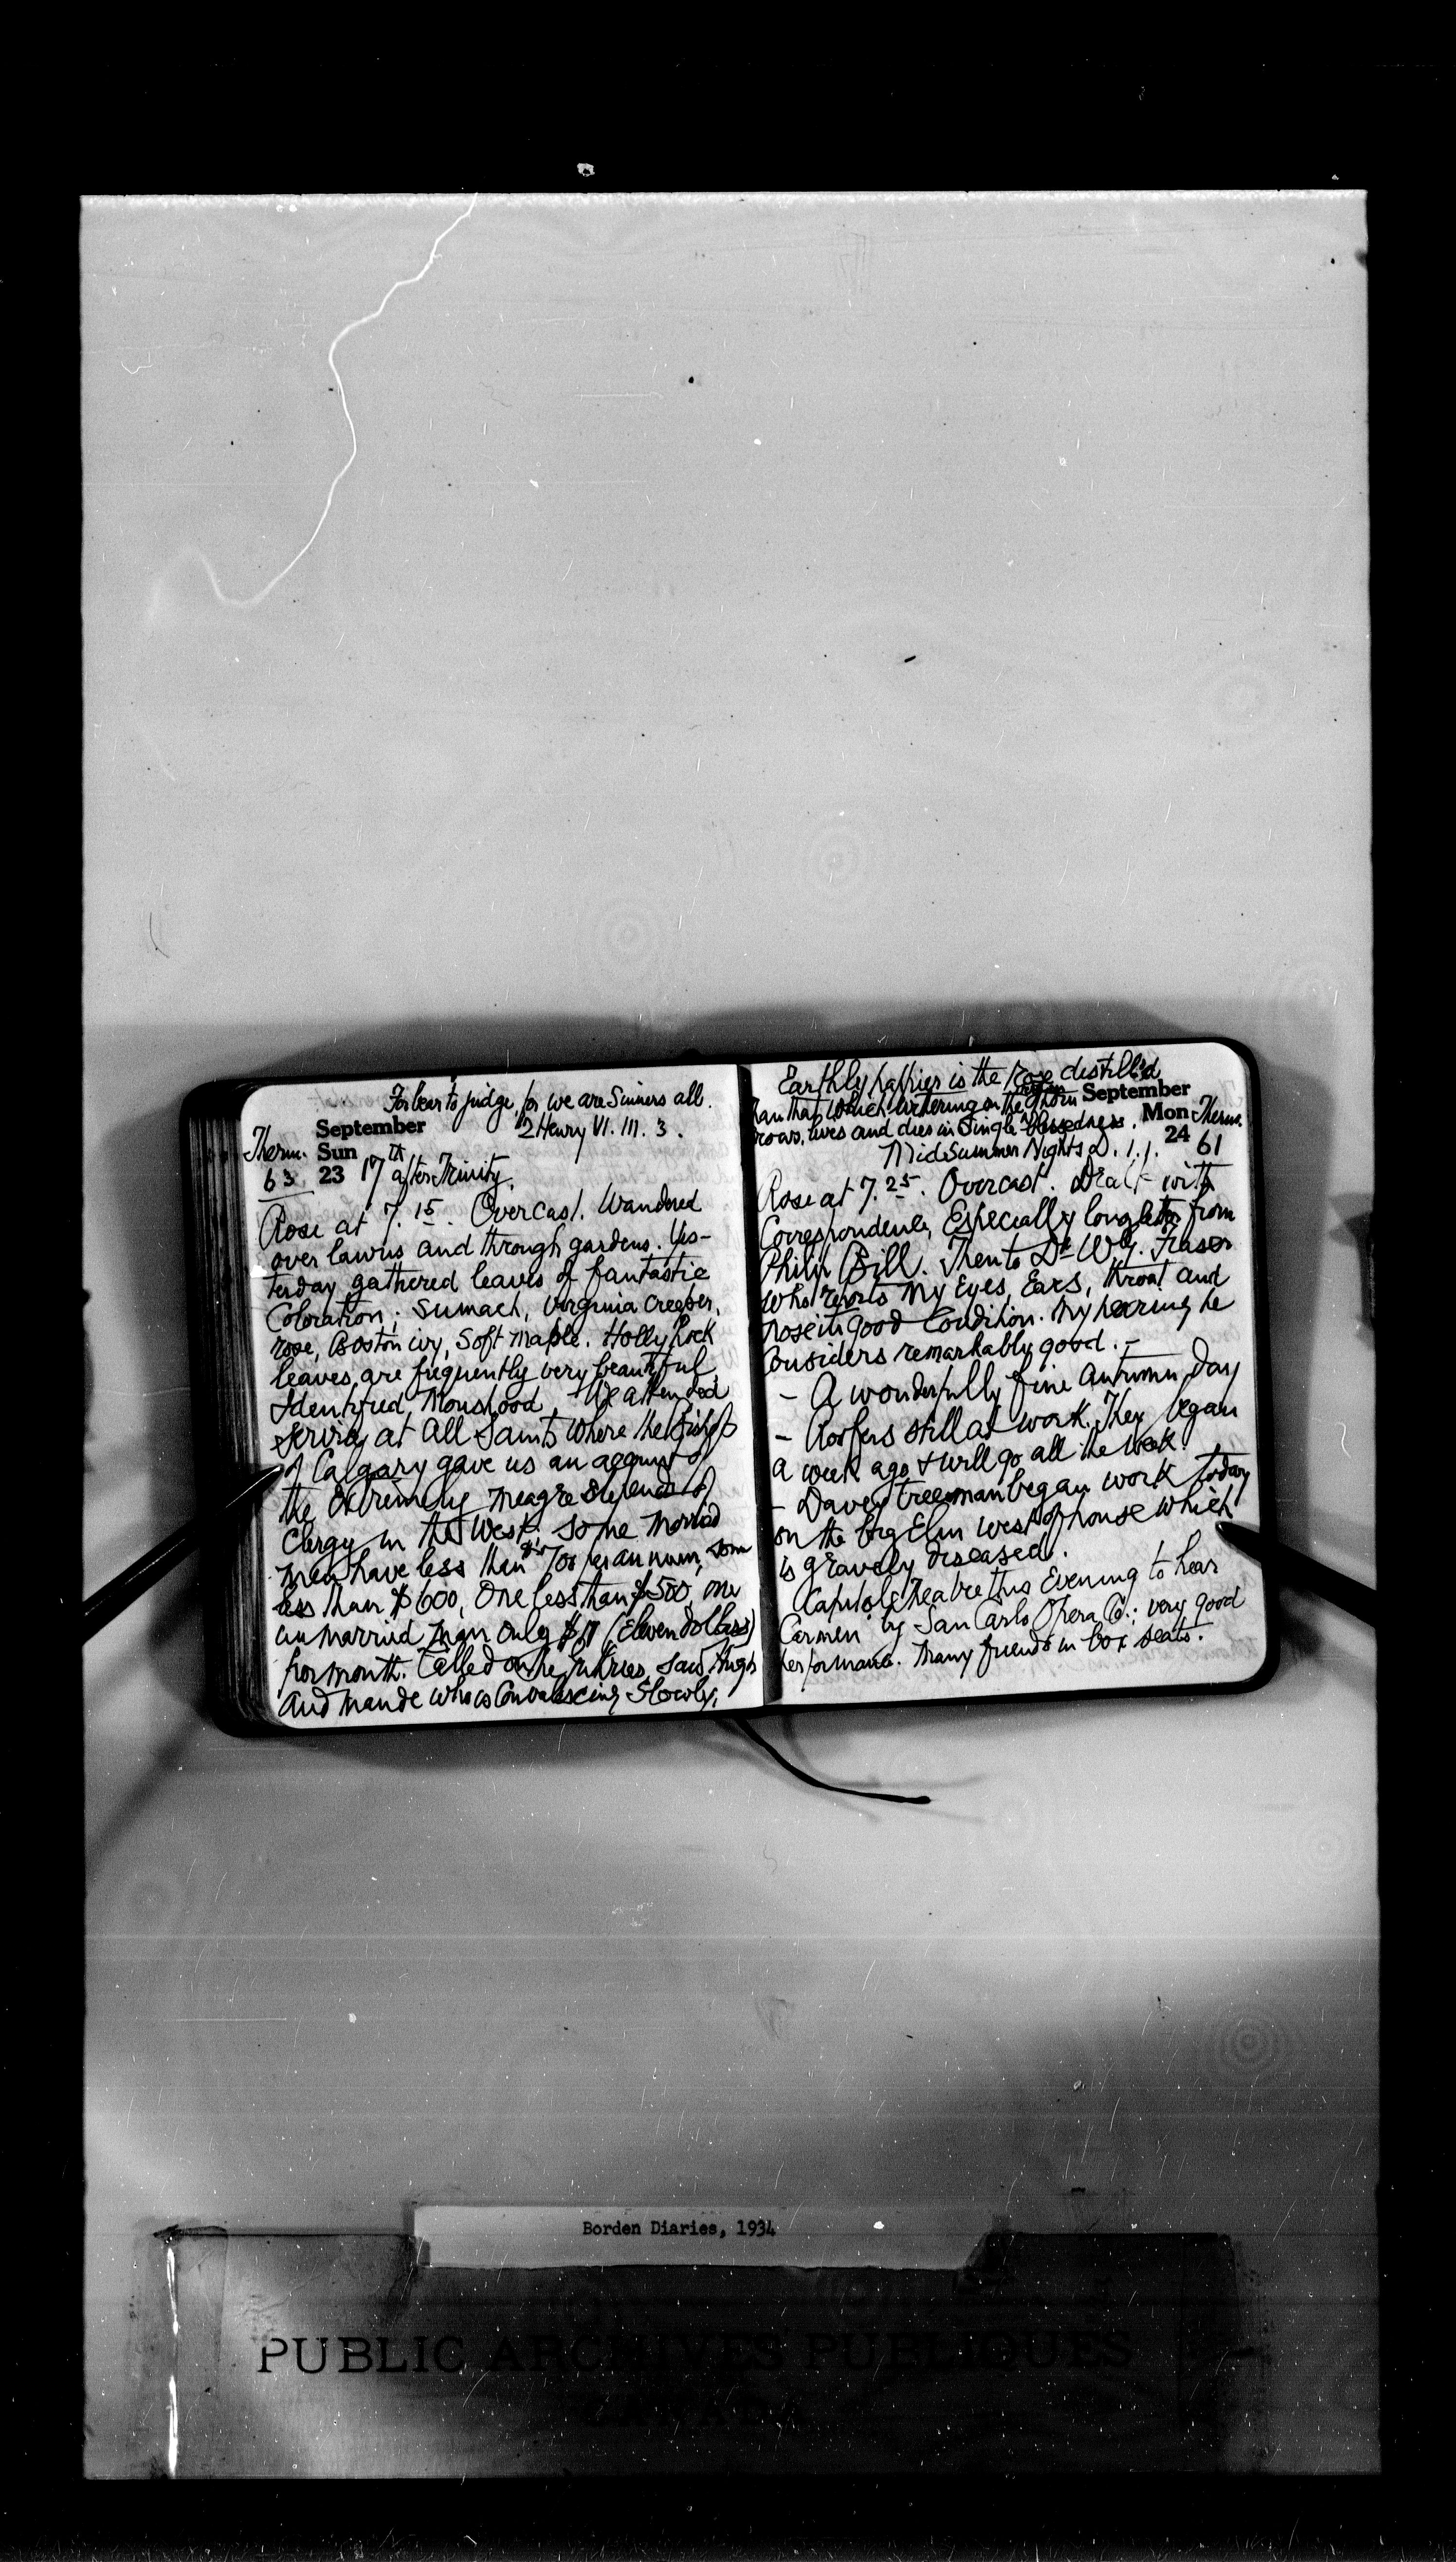 Forbear to judge, for we are Sinners all.
2 Henry VI. III. 3.
September
Therm. Sun
63 23 17th after Trinity.
Rose at 7.15. Overcast. Wandered
over lawns and through gardens. Yes-
terday gathered leaves of fantastic
Coloration; Sumach, Virginia Creeper,
rose, Boston ivy, Soft maple. Hollyhock
leaves are frequently very beautiful.
Identified Monshood. We attended
Service at All Saints where the Bishop
of Calgary gave us an account of
the extremely meagre stipends of
Clergy in the West. Some married
men have less than $700 per annum, some
less than $600, One less than $500, one
unmarried man only $11 (Eleven dollars)
per month. Called on the Guthries, saw Hugh
and Maude who is Convalescing slowly.
Earthly happier is the Rose distill'd
than that which withering on the virgin thorn
rows, lives and dies in Single blessedness.
MidSummer Nights D. I.1.
September
Mon Therm.
24 61
Rose at 7.25. Overcast. Dealt with
Correspondence, Especially long letter from
Philip Bill. Then to Dr W.G. Fraser
who reports my Eyes, Ears, throat and
nose in good Condition. My hearing he
Considers remarkably good. –
– A wonderfully fine Autumn day
– Roofers still at work. They began
a week ago & will go all the week.
– Davey treeman began work today
on the big Elm west of house which
is gravely diseased.
Capitol Theatre this Evening to hear
Carmen by San Carlo Opera Co.; very good
performance. Many friends in box seats.
Borden Diaries, 1934
PUBLIC ARCHIVES PUBLIQUES
CANADA